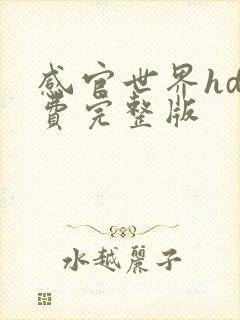 感官世界hd
費完整版
水越麗子